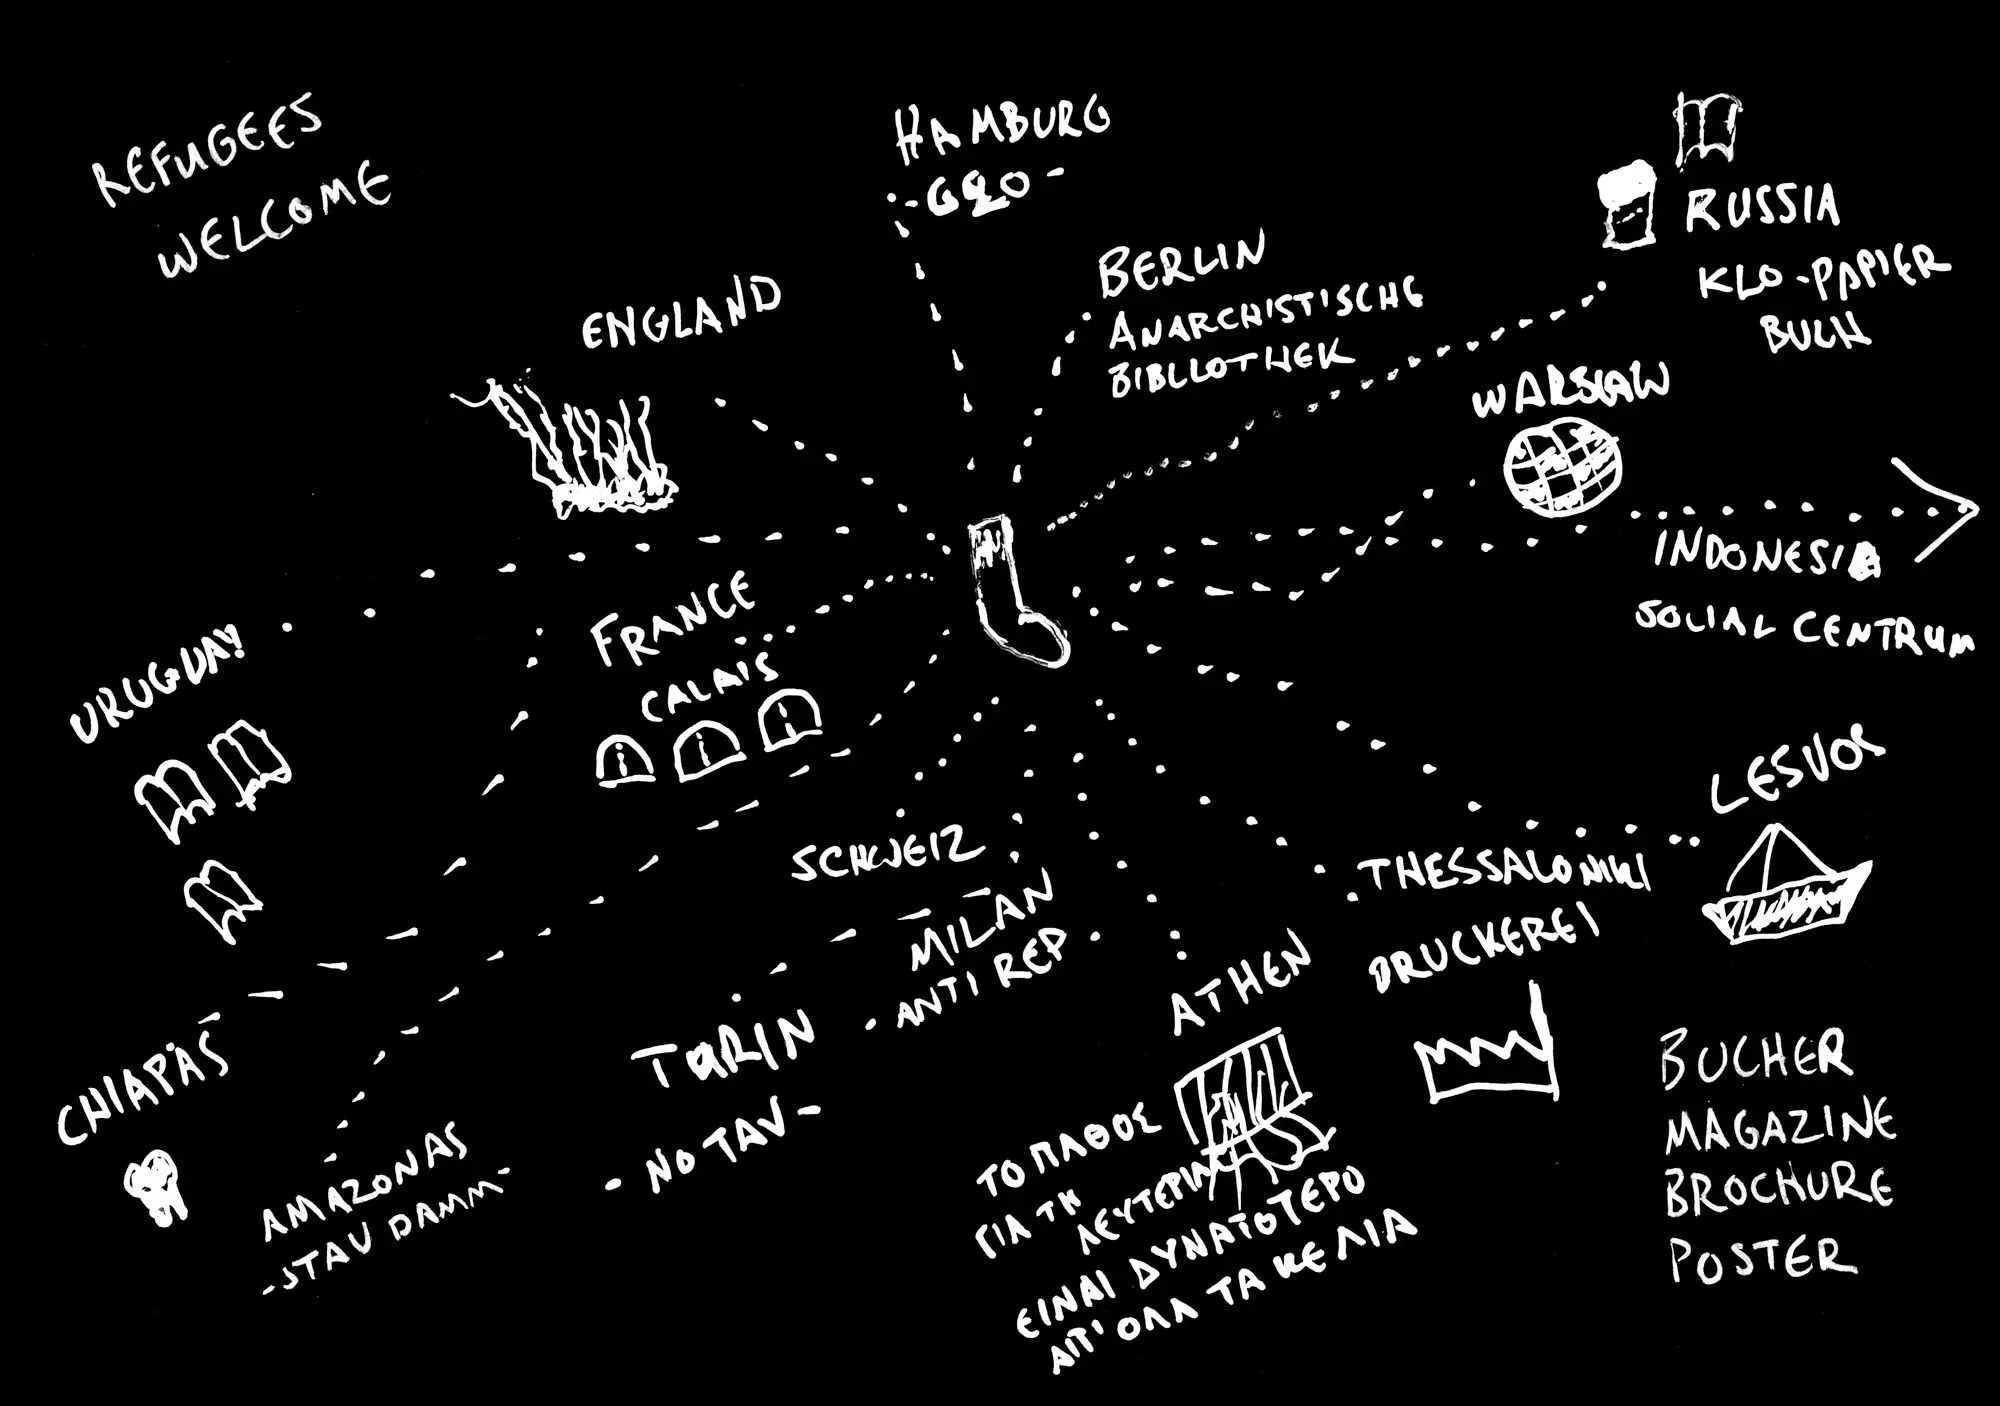 REFUGEES
WELCOME
HAMBURG
-G20-
ENGLAND
BERLIN
ANARCHISTISCHE
BIBLLOTHEK
RUSSIA
KLO-PAPIER
BUCH
WARSAW
INDONESIA
SOCIAL CENTRUM
URUGUAY
FRANCE
CALAIS
LESVOS
SCHWEIZ
MILAN
ANTI REP
THESSALONIKI
DRUCKEREI
CHIAPAS
AMAZONAS
-STAUDAMM-
TURIN
- NO TAV -
ATHEN
ΤΟ ΠΑΘΟΣ
ΓΙΑ ΤΗ
ΛΕΥΤΕΡΙΑ
ΕΙΝΑΙ ΔΥΝΑΤΟΤΕΡΟ
ΑΠ' ΟΛΑ ΤΑ ΚΕΛΙΑ
BUCHER
MAGAZINE
BROCHURE
POSTER